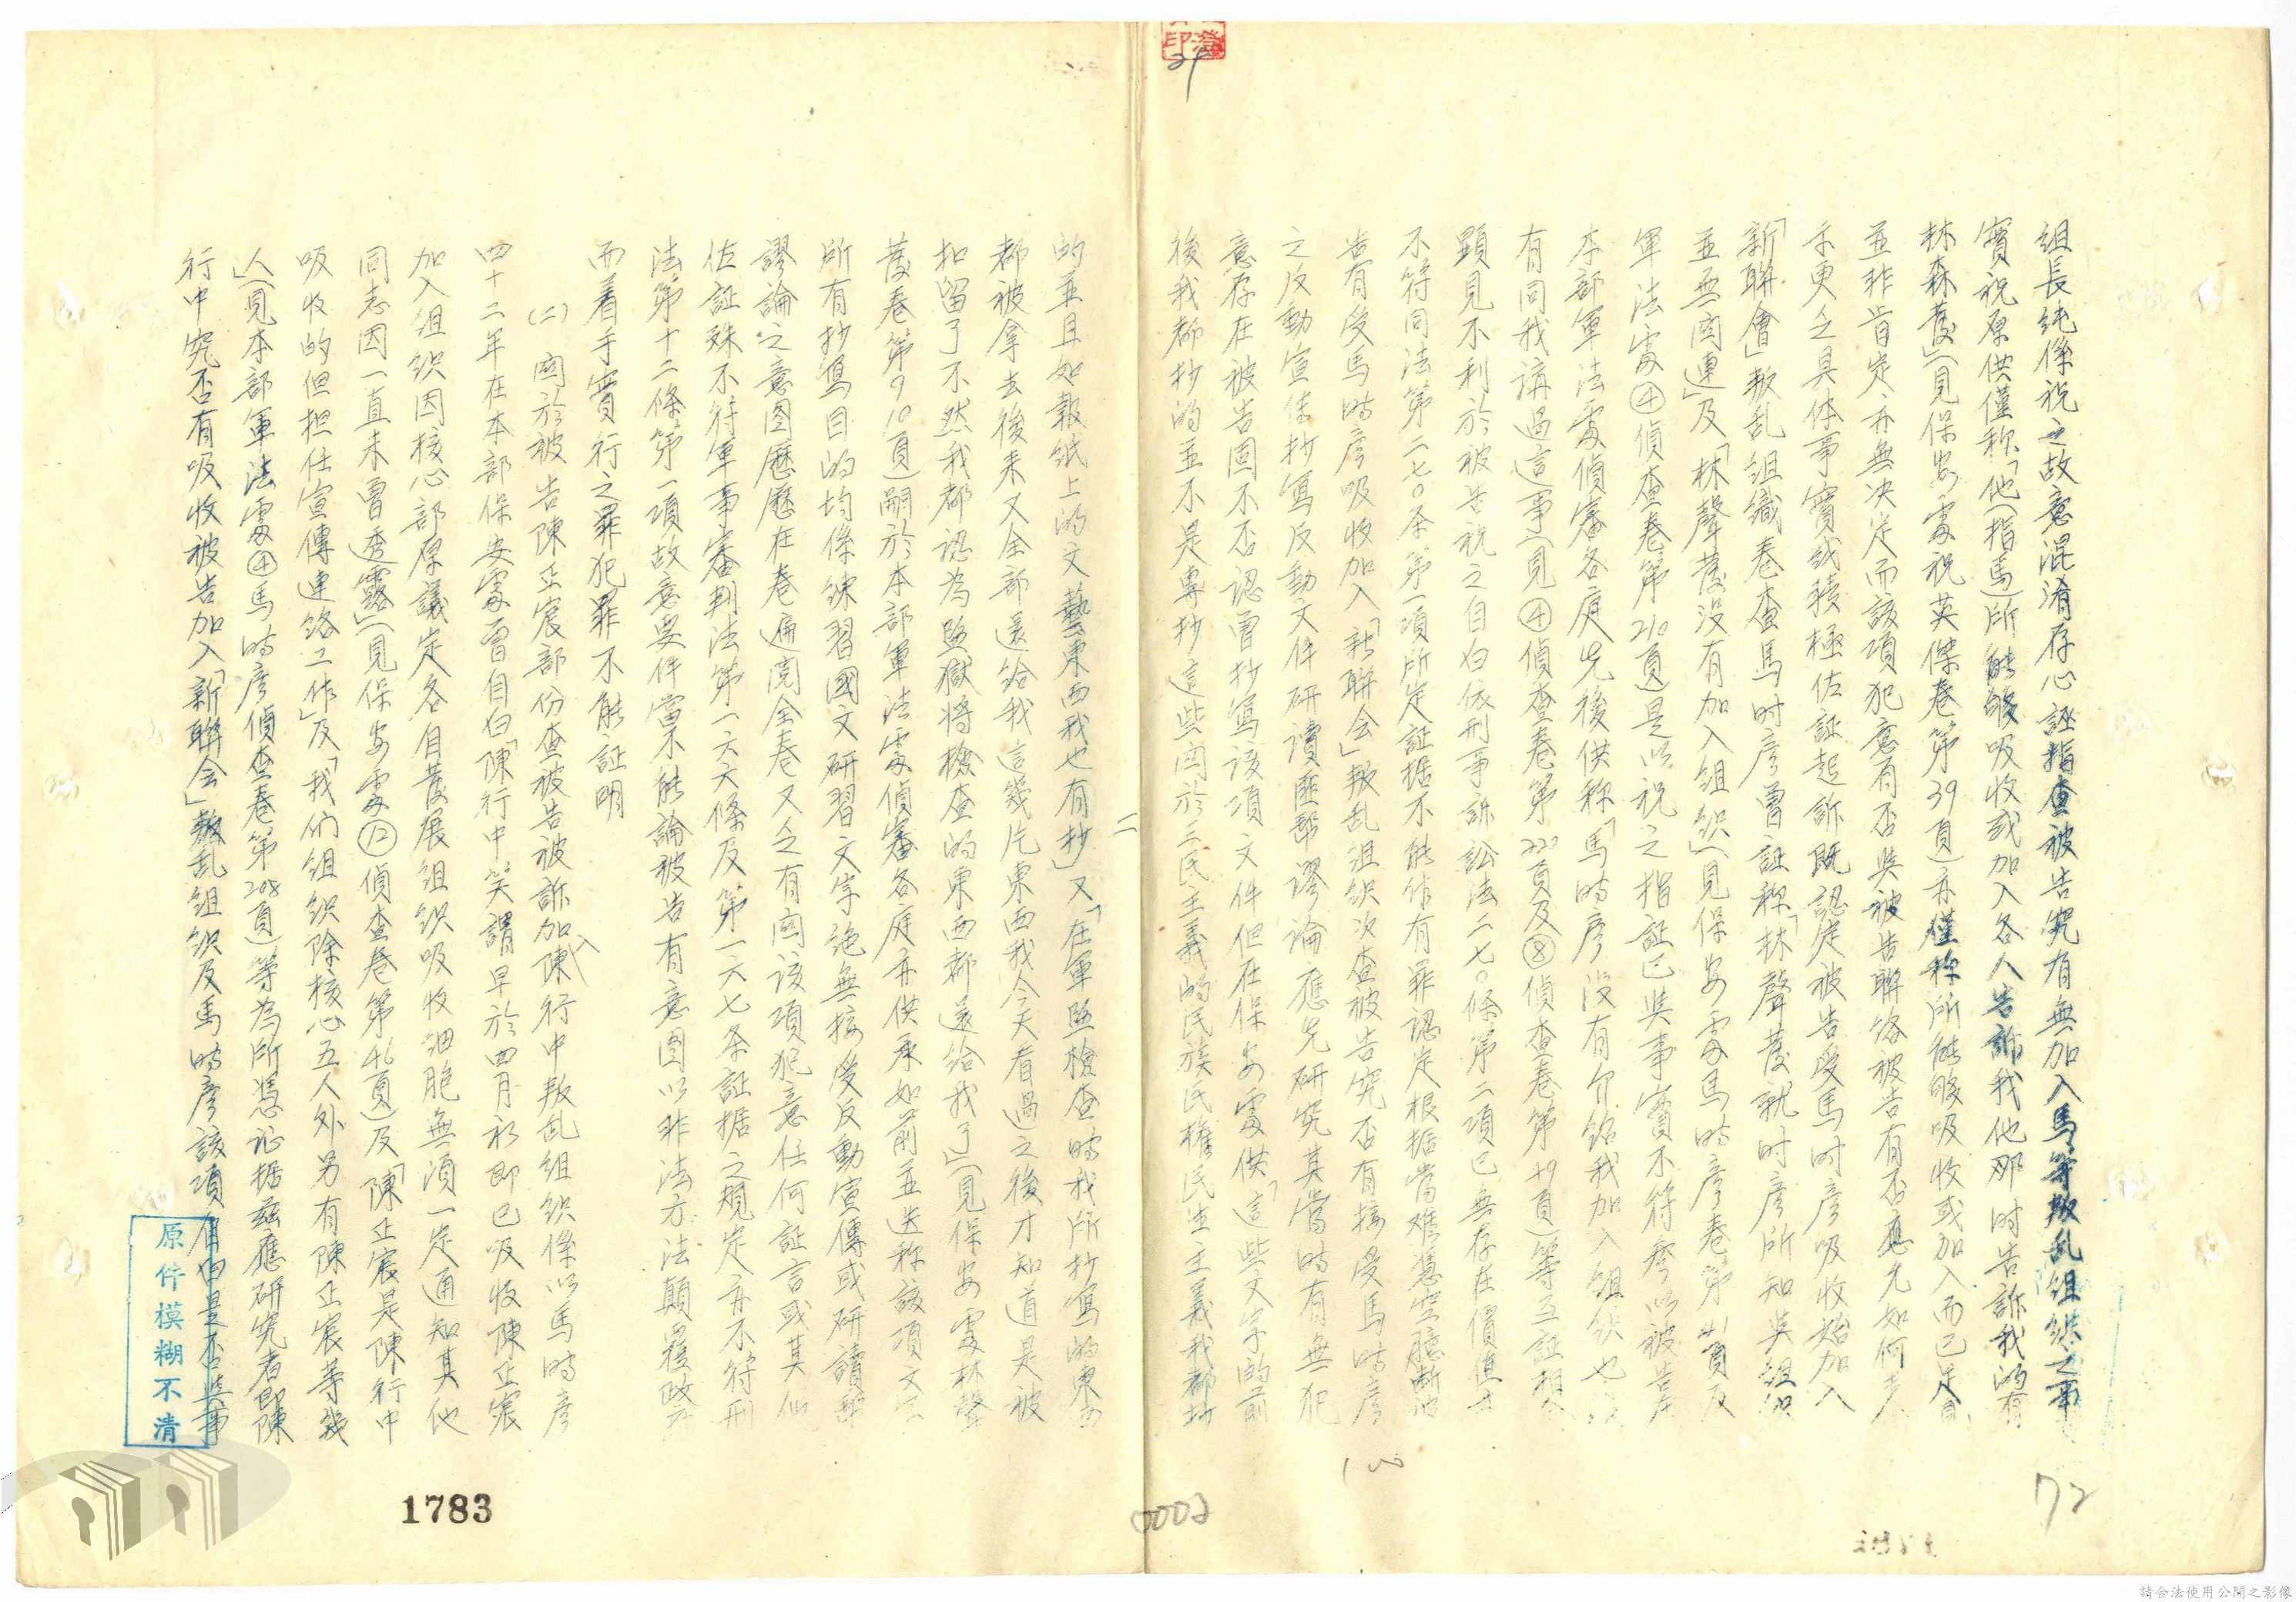 組長純係祝之故意混淆存心誣指查被告究有無加入馬等叛乱組织之事
實祝原供僅称「他(指馬)所能够吸收或加入各人告訴我他那时告訴我的有
林森發」(見保安處祝英傑卷第39頁)亦僅称所能够吸收或加入而已足見
並非肯定亦無决定而該項犯意有否與被告聯络被告有否應允如何
亦更乏具体事實或積極佐証起訴既認定被告受馬时彦吸收始加入
「新聯會」叛乱組織卷查馬时彦曾証称「林聲發就时彦所知与組织
並無関連」及「林聲發没有加入組织」(見保安處馬时彦卷第41頁及
軍法處④偵查卷第210頁)是以祝之指証已與事實不符
本部軍法處偵審各庭先後供称「馬时彦没有介紹我加入組织也
有同我講過這事」(見④偵查卷第220頁及⑧偵查卷第49頁)等互証
顕見不利於被告祝之自白依刑事訴訟法二七〇條第二項已無存在價值
不符同法第二七〇条第一項所定証据不能作有罪認定根据當难憑空臆断
告有受馬时彦吸收加入「新聯会」叛乱組织次查被告究否有接受馬时彦
之反動宣传抄写反動文件研讀匪帮謬論應先研究其當时有無犯
意存在被告固不否認曾抄写該項文件但在保安處供「這些文字的前
後我都抄的並不是專抄這些関於三民主義的民族民權民生主義我都抄
二
的並且如報纸上的文藝東西我也有抄」又「在軍監檢查时我所抄寫的東西
都被拿去後来又全部還給我這幾片東西我今天看過之後才知道是被
扣留了不然我都認為監獄将檢查的東西都還給我了」(見保安處林聲
發卷第910頁)嗣於本部軍法處偵審各庭亦供承如前並迭称該項文字
所有抄寫目的均係練習國文研習文字絶無接受反動宣傳或研讀匪
謬論之意图歷歷在卷遍閲全卷又乏有関該項犯意任何証言或其他
佐証殊不符軍事審判法第一六六條及第一六七条証据之規定亦不符刑
法第十二條第一項故意要件當不能論被告有意图以非法方法顛覆政府
而着手實行之罪犯罪不能証明
(二)関於被告陳正宸部份查被告被訴加入陳行中叛乱組织係以馬时彦
四十二年在本部保安處曾自白「陳行中笑謂早於四月初即已吸收陳正宸
加入組织因核心部原議定各自發展組织吸收细胞無須一定通知其他
同志因一直未曾透露」(見保安處⑫偵查卷第46頁)及「陳正宸是陳行中
吸收的但担任宣傳連络工作」及「我们組织除核心五人外另有陳正宸等幾
人」(見本部軍法處④馬时彦偵查卷第208頁)等為所憑証据茲應研究者即陳
行中究否有吸收被告加入「新聯会」叛乱組织及馬时彦該項自白是否與事
原件模糊不清
1783
72
請合法使用公開之影像